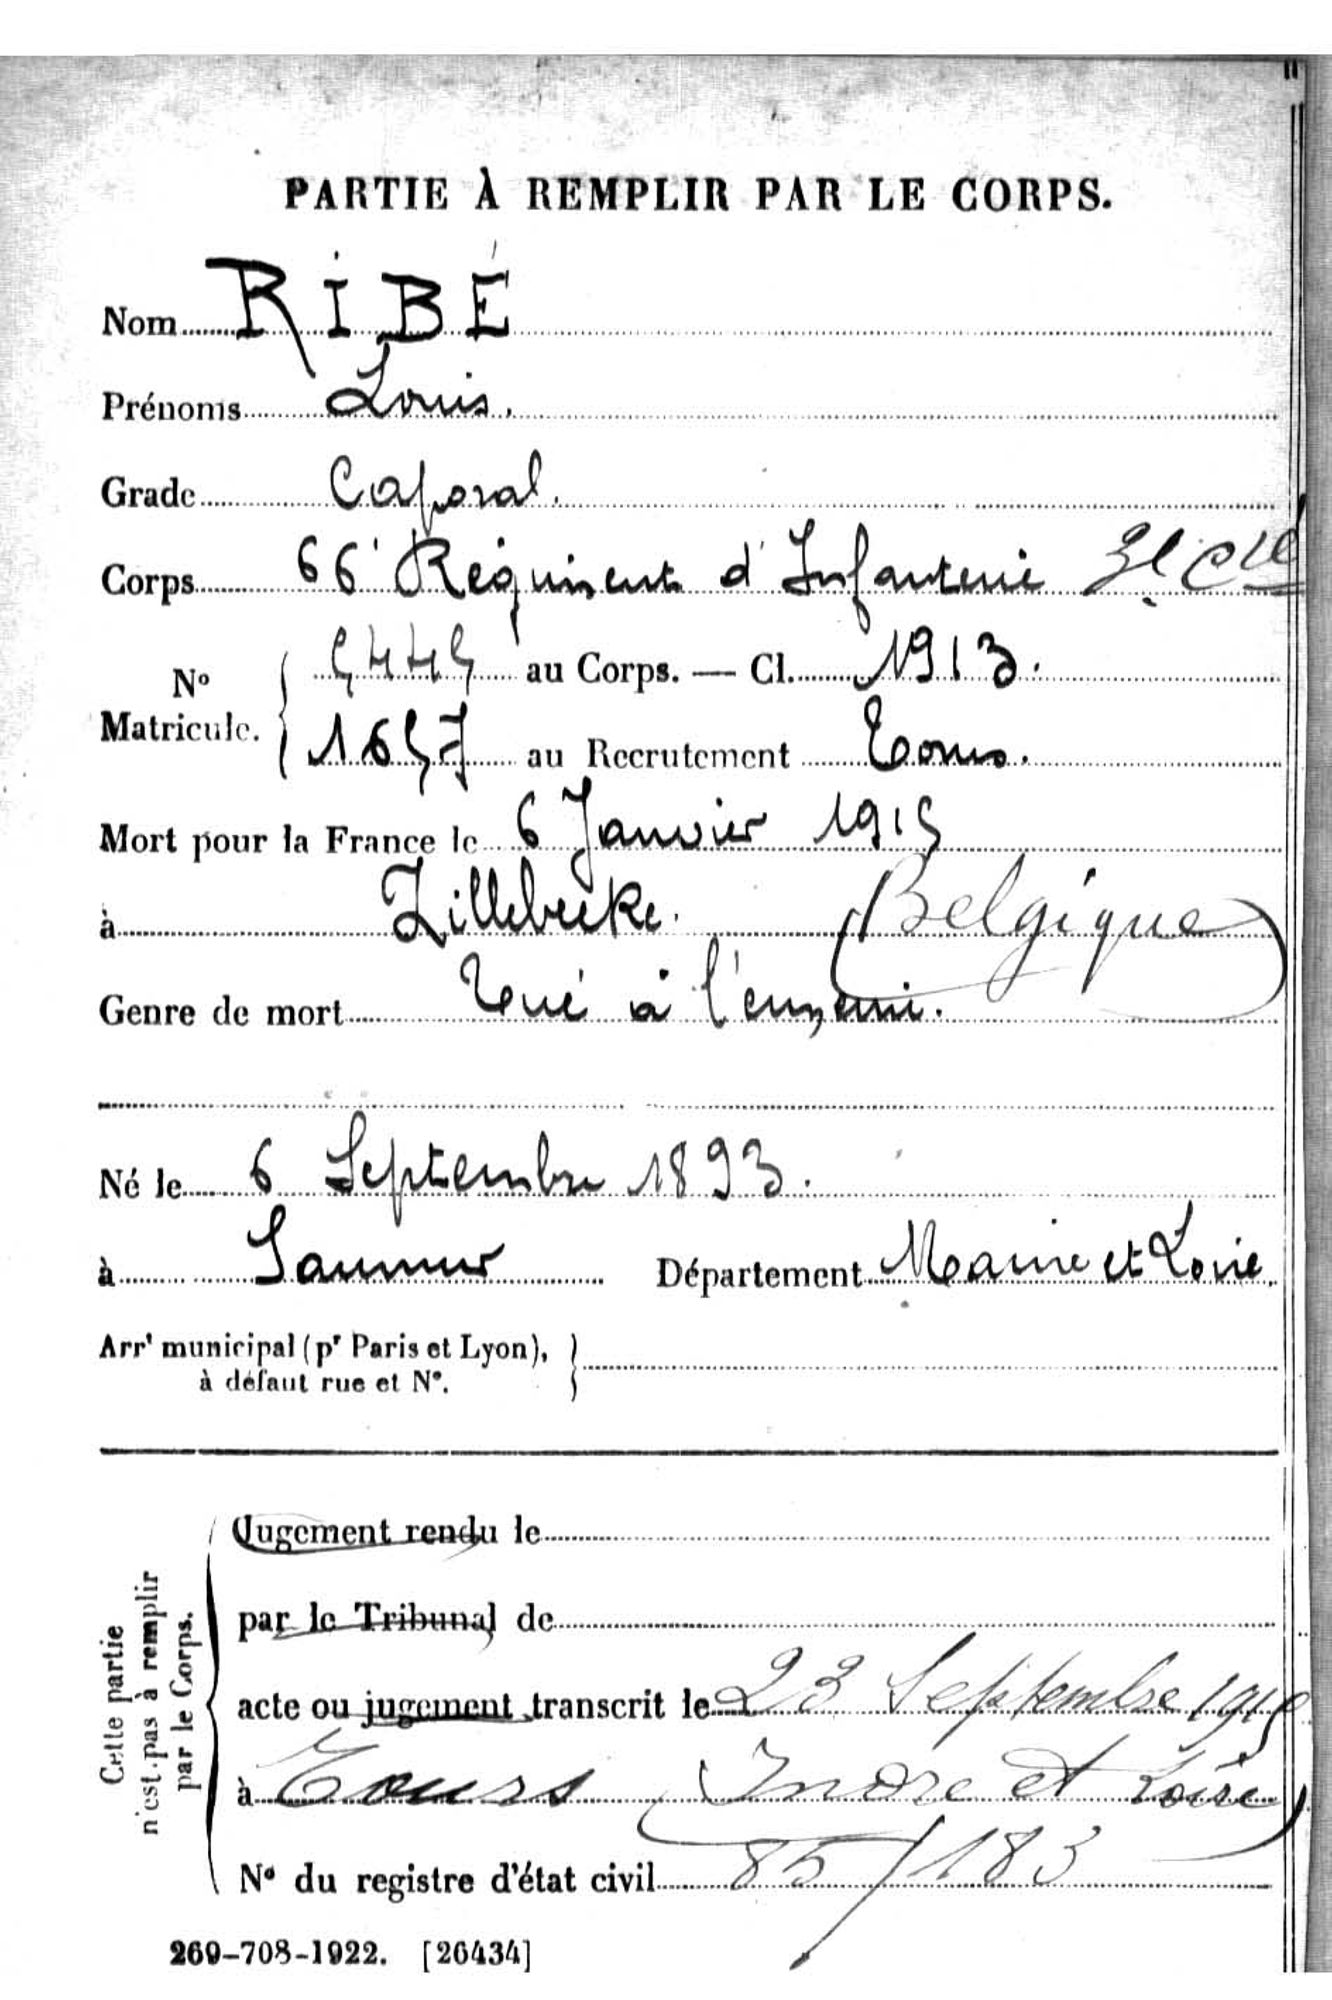 PARTIE À REMPLIR PAR LE CORPS.
Nom RIBÉ
Prénoms Louis.
Grade Caporal.
Corps 66e Régiment d'Infanterie 3e Cie
No Matricule. 5445 au Corps. — Cl. 1913.
1657 au Recrutement Tours.
Mort pour la France le 6 Janvier 1915
à Zillebecke. (Belgique)
Genre de mort Tué à l'ennemi.
Né le 6 Septembre 1893.
à Saumur Département Maine et Loire.
Arrt municipal (pr Paris et Lyon),
à défaut rue et No.
Cette partie
n'est pas à remplir
par le Corps.
Jugement rendu le
par le Tribunal de
acte ou jugement transcrit le 23 Septembre 1915
à Tours (Indre et Loire)
No du registre d'état civil 85/183
269-708-1922. [26434]